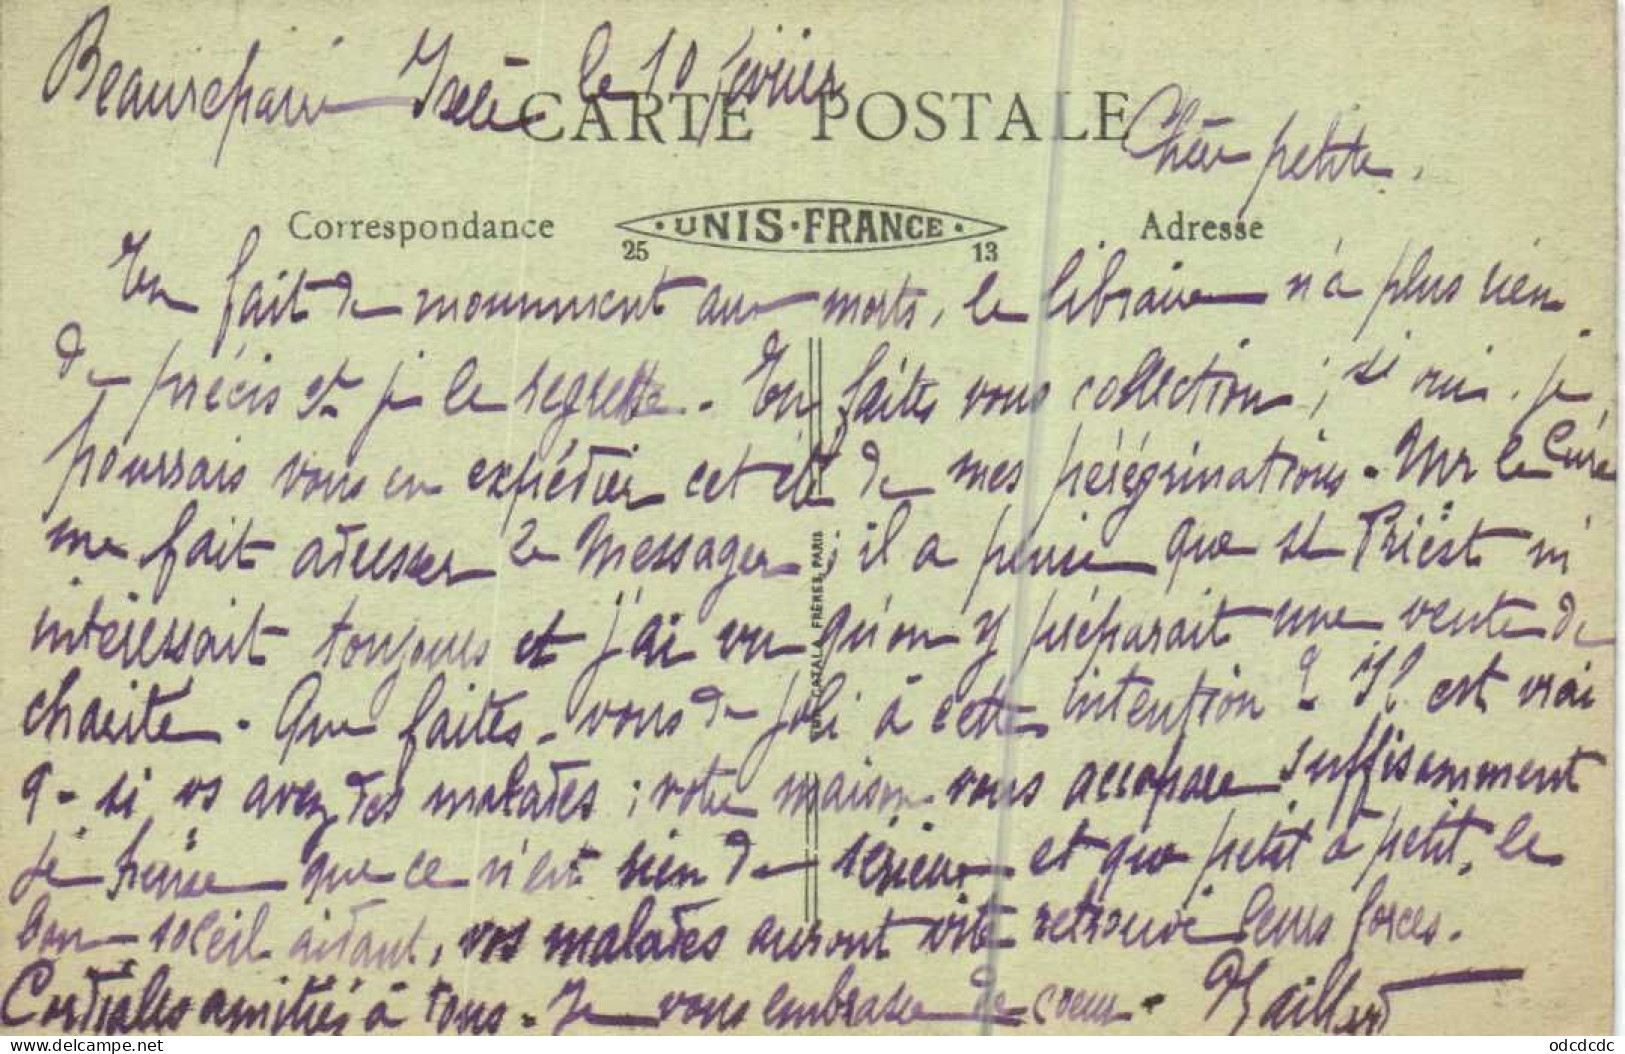 Beaurepaire Isère le 10 février
CARTE POSTALE
Chère petite,
Correspondance
UNIS-FRANCE
Adresse
25 13
En fait de monument aux morts, le libraire n'a plus rien
de précis et je le regrette. En faites vous collection ; si oui, je
pourrais vous en expédier cet été de mes pérégrinations. Mr le Curé
me fait adresser le Messager ; il a pensé que St Priest m'
intéressait toujours et j'ai vu qu'on y préparait une vente de
charité. Que faites-vous de joli à cette intention ? Il est vrai
q. si vs avez des malades ; votre maison vous accapare suffisamment
je pense que ce n'est rien de sérieux et que petit à petit, le
bon soleil aidant, vos malades auront vite retrouvé leurs forces.
Cordiales amitiés à tous. Je vous embrasse de coeur.
CATALA FRÈRES, PARIS
odcdcdc
delcampe.net